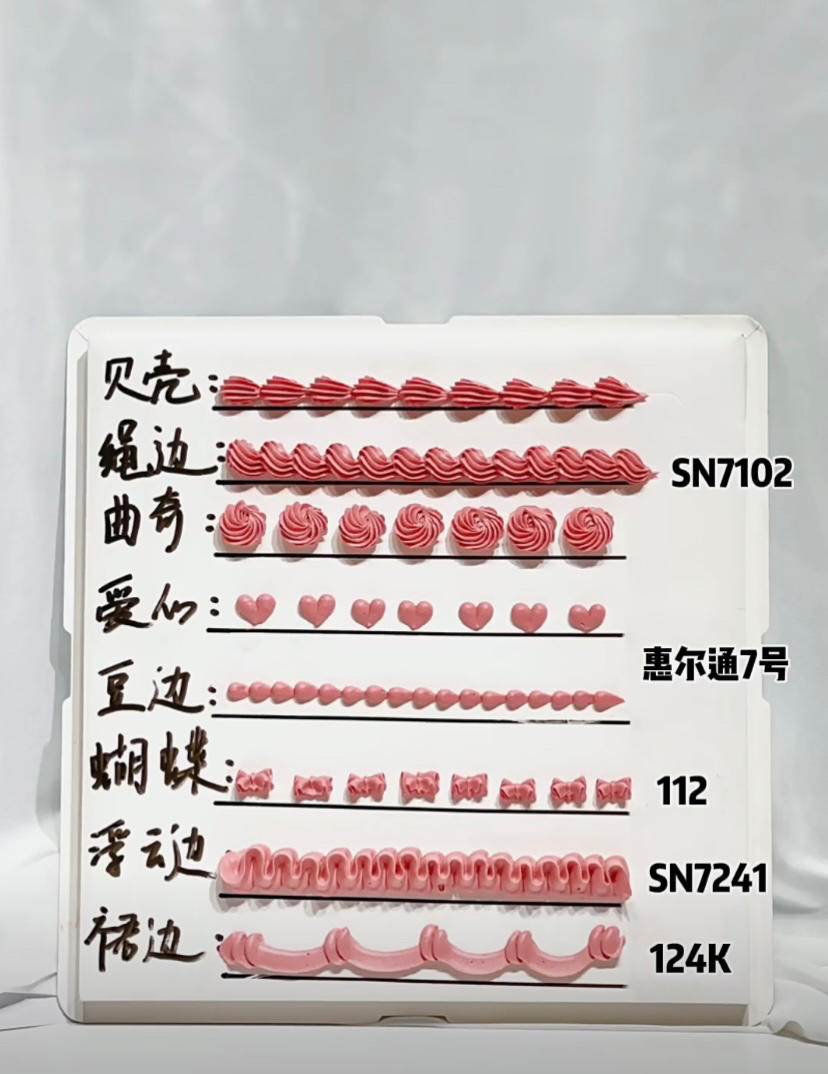 贝壳:
绳边: SN7102
曲奇:
爱心:
惠尔通7号
豆边:
蝴蝶: 112
浮云边 SN7241
裙边: 124K